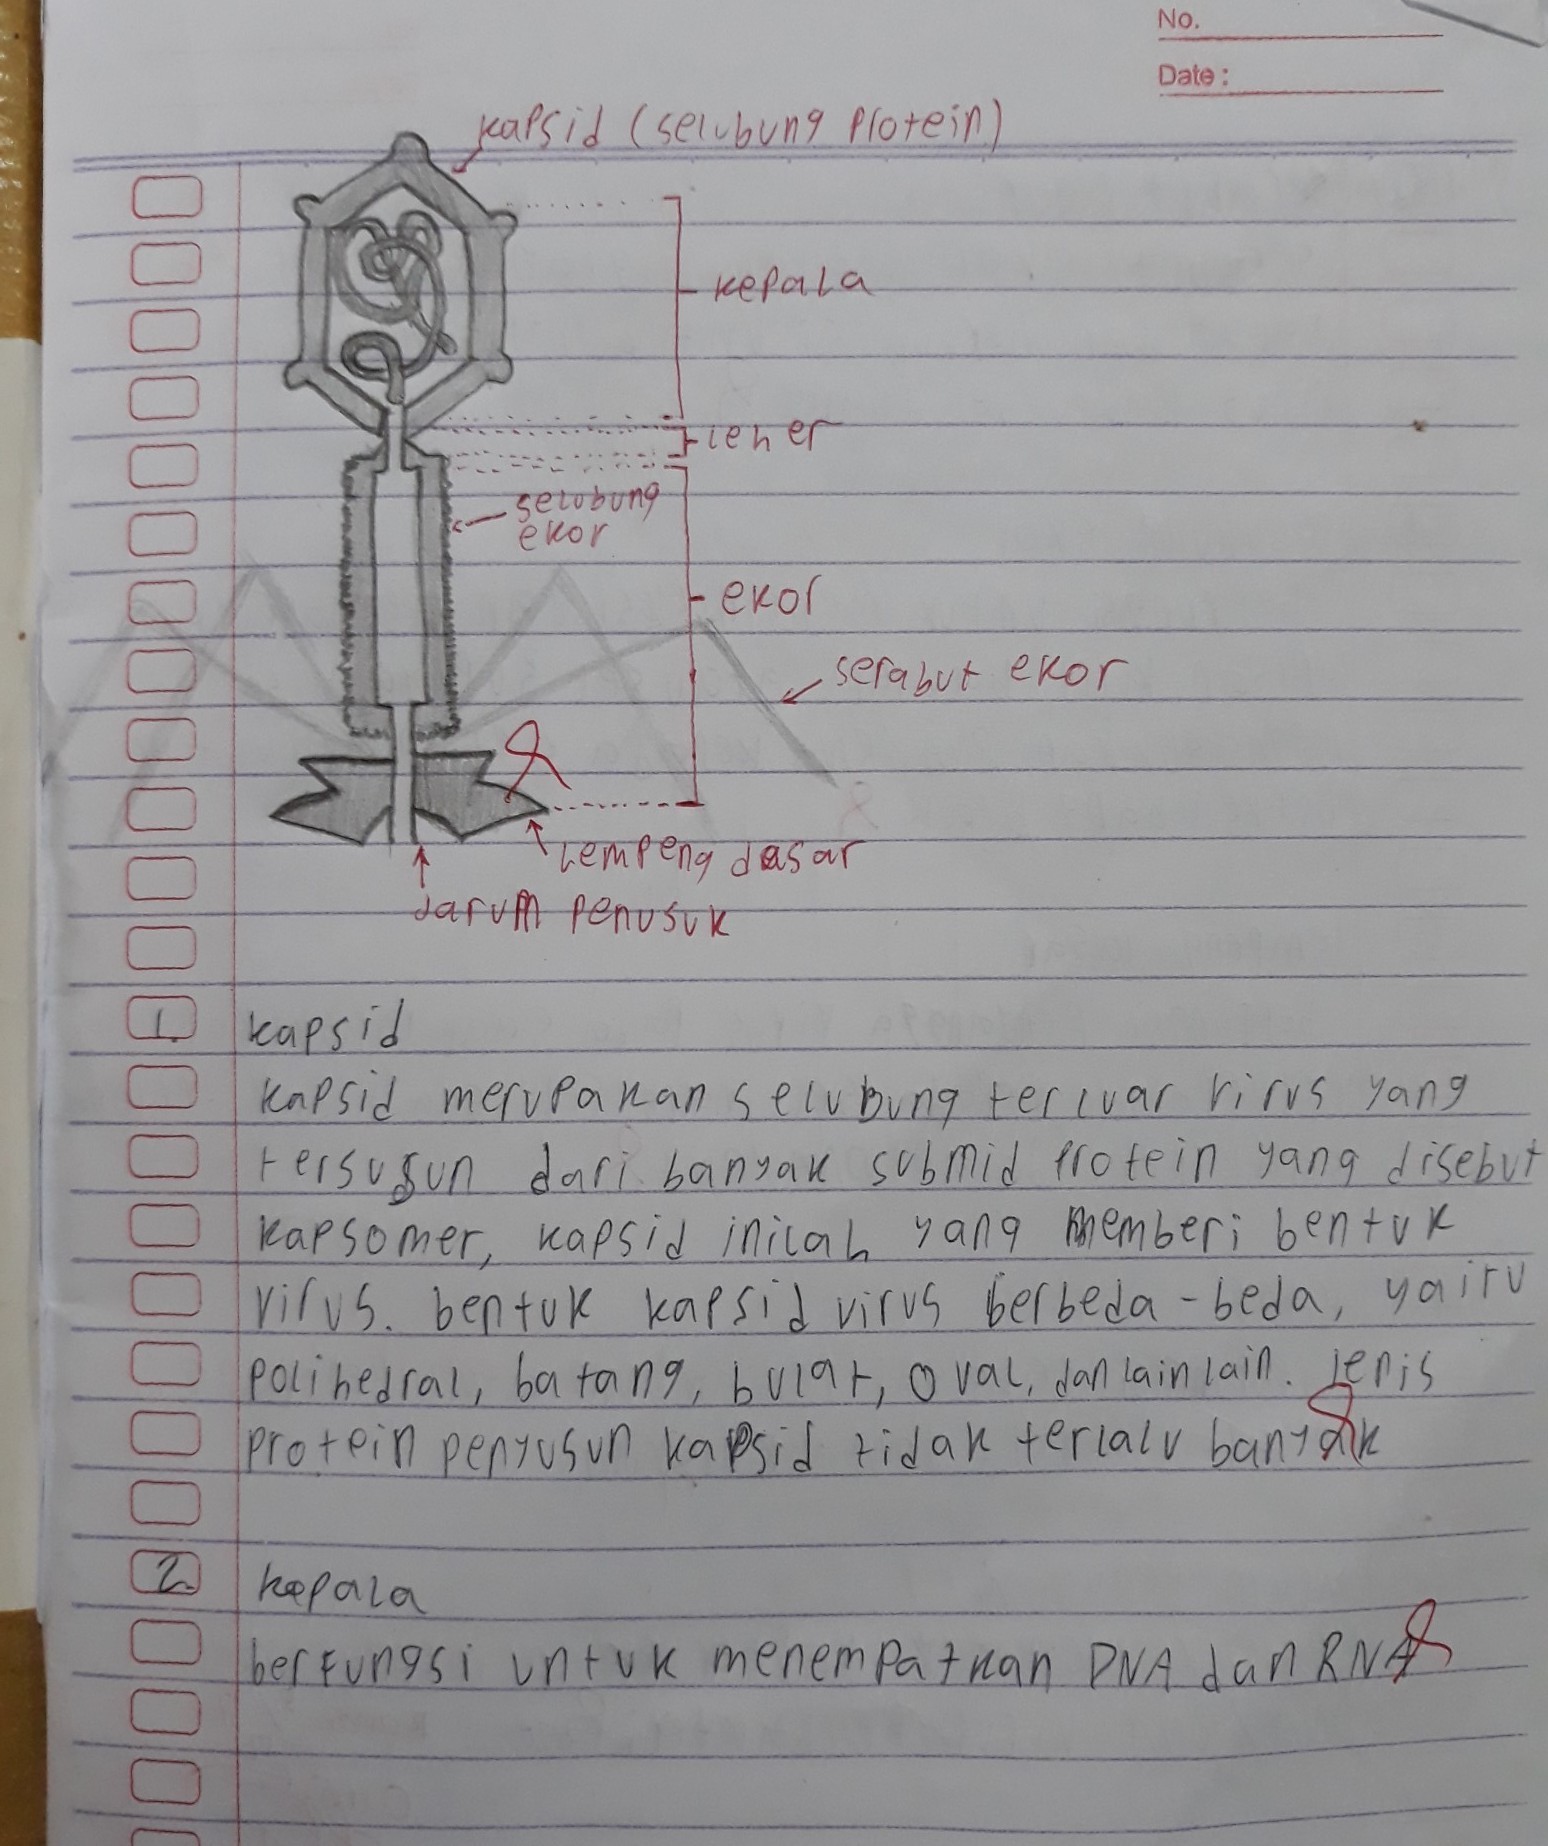 No.
Date :
kapsid (selubung protein)
kepala
leher
selubung
ekor
ekor
serabut ekor
lempeng dasar
Jarum penusuk
1. kapsid
kapsid merupakan selubung terluar virus yang
tersusun dari banyak submid protein yang disebut
kapsomer, kapsid inilah yang memberi bentuk
virus. bentuk kapsid virus berbeda-beda, yaitu
polihedral, batang, bulat, oval, dan lain lain. jenis
protein penyusun kapsid tidak terlalu banyak
2. kepala
berfungsi untuk menempatkan DNA dan RNA